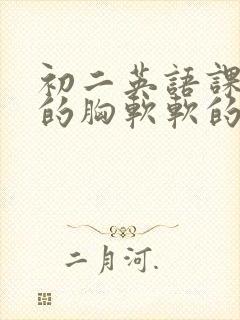 初二英語課
的胸軟軟的
二月河.